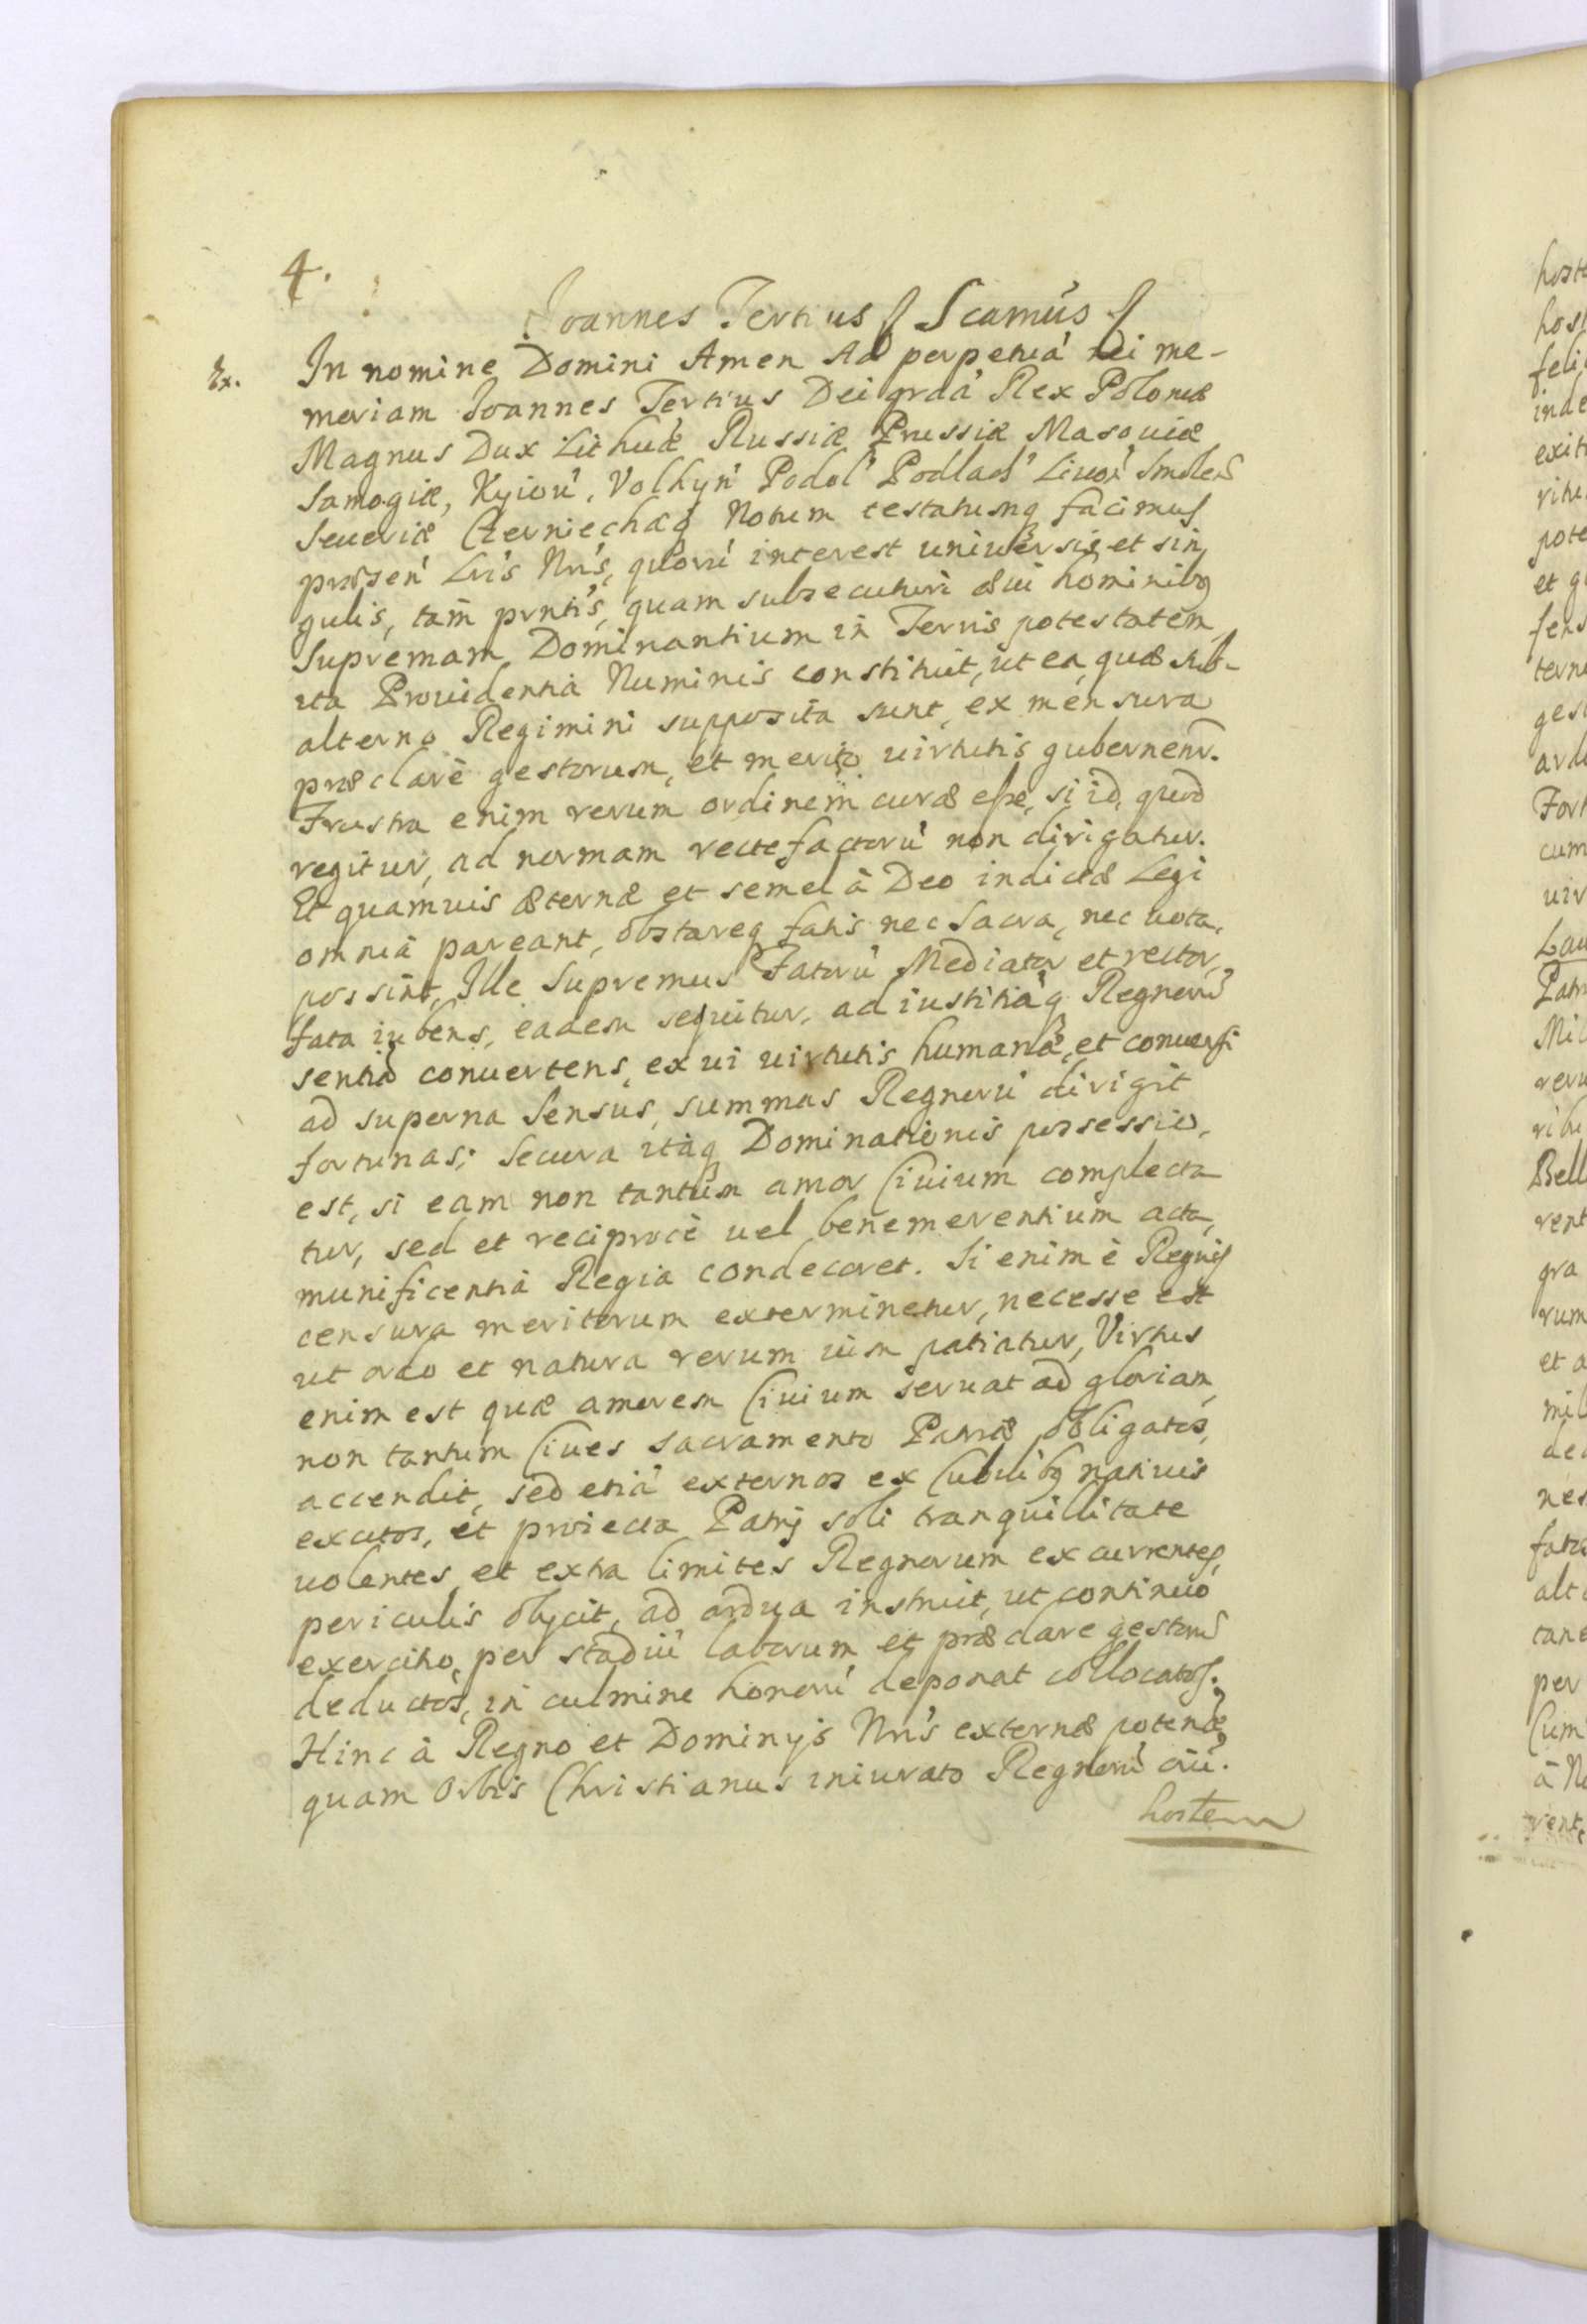 4.
Joannes Tertius // Scamús //
Ex. In nomine Domini Amen Ad perpetuá rei me-
moriam Joannes Tertius Dei grâá Rex Poloniæ
Magnus Dux Lithuæ Russiæ Prussiæ Masoviæ
Samogiæ, Kyioú, Volhyń Podoĺ Podlach́ Livoń Smoleń
Seueriæ Czerniechæq́ Notum testatumq facimus
præseń Lrís Nrís, quorú interest uniuersis et sin
gulis, tam̃ pvntís, quam subsecuturi æui hominibq
Supremam Dominantium in Terris potestatem
ita Prouidentia Numinis constituit, ut ea, quæ sub-
alterno Regimini supposita sunt, ex mensura
præclarè gestorum, et merito uirtutis gubernenr.
Frustra enim rerum ordinem curæ esse, si id, quod
regitur, ad normam recte factorú non dirigatur.
Et quamuis æternæ et semel à Deo indictæ Legi
omnia pareant, obstareq fatis nec Sacra, nec uota,
possint, Ille Supremus Fatorú Mediator et rector,
fata iubens, eadem sequitur, ad iustitiáq Regnorú
sentiæ conuertens, ex ui uirtutis humanæ, et conuersi
ad superna Sensús, summas Regnorú dirigit
fortunas; Secura itáq Dominationis possessio,
est, si eam non tantum amor Ciuium complecta
tur, sed et reciprocè uel benemerentium acta,
munificentia Regia condecoret. Si enim è Regnis
censura meritorum exterminetur, necesse est
ut ordo et natura rerum uim patiatur, Virtus
enim est quæ amorem Ciuium seruat ad gloriam,
non tantum Ciues sacramento Patriæ obligatos,
accendit, sed etiá externos ex Cubilibq natiuis
excitos, et proiecta Patrij soli tranquillitate
uolentes et extra limites Regnorum excurrentes,
periculis obijcit, ad ardua instruit, ut continuo
exercitio, per stadiú laborum et præclare gestorú
deductos, in culmine honorú deponat collocatos.
Hinc à Regno et Dominijs Nrís externæ potentiæ,
quam Orbis Christianus iniurato Regnorú
hostem